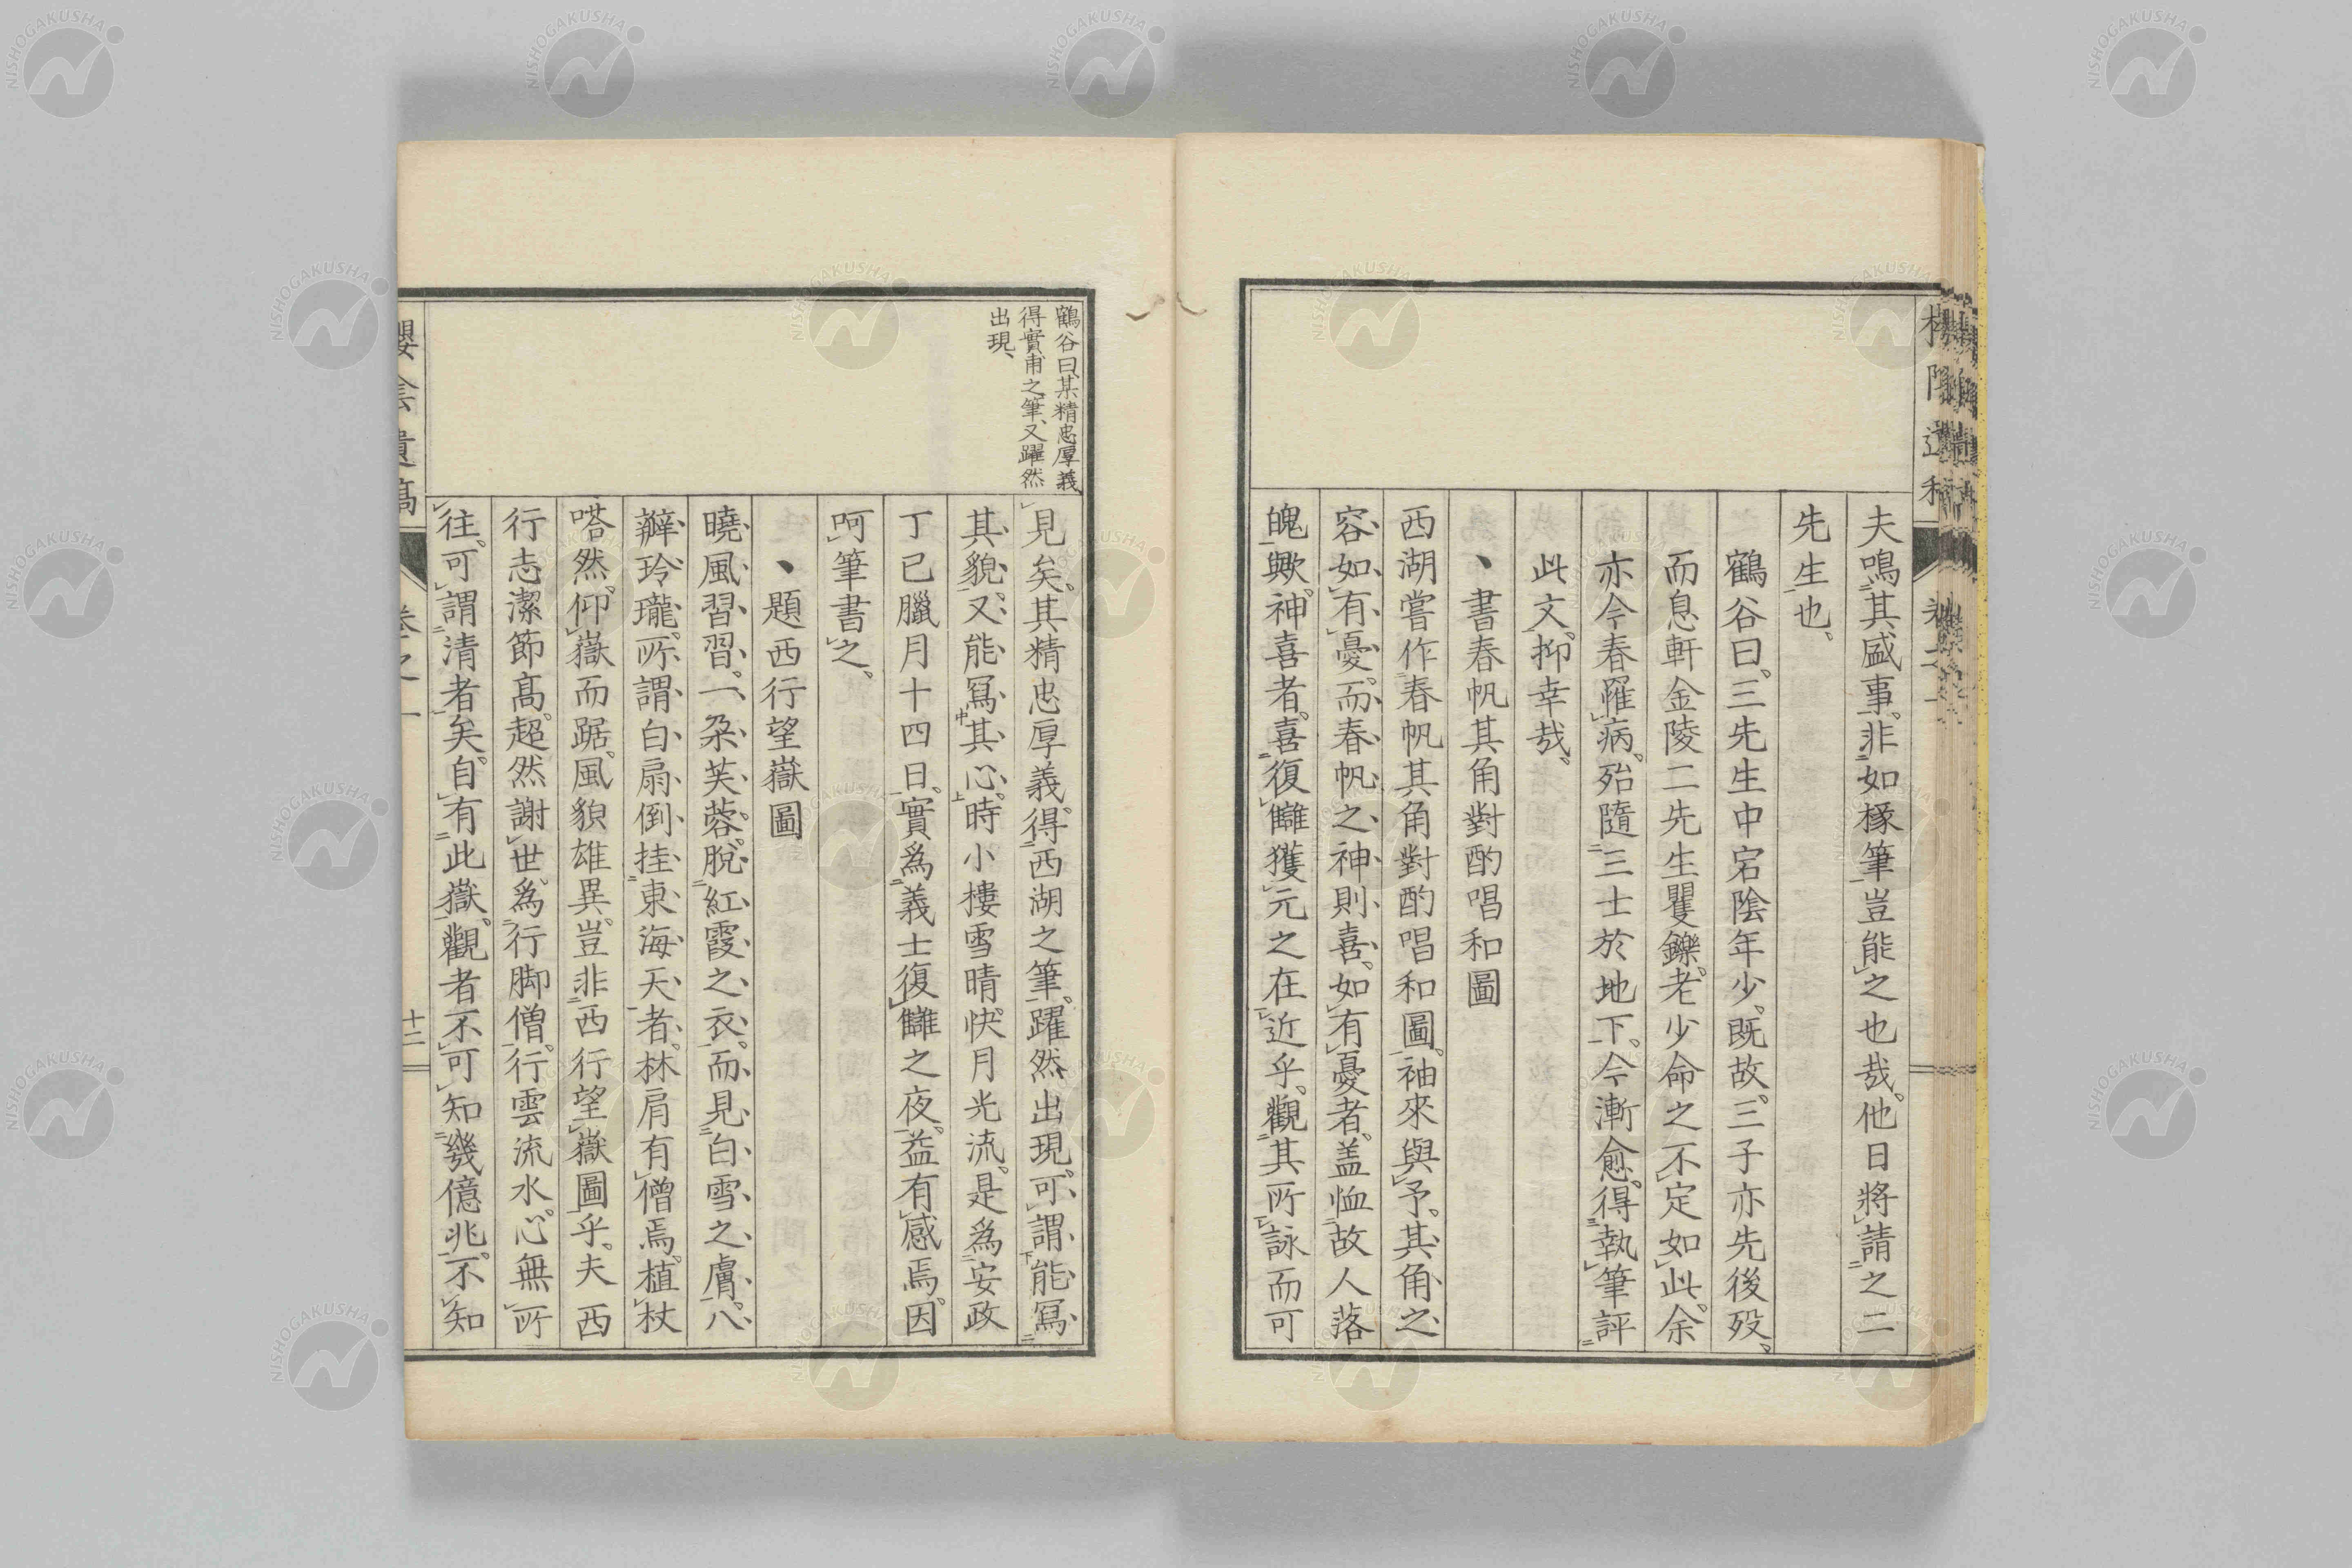 夫鳴其盛事。非如椽筆豈能之也哉。他日將請之二
先生也、
鶴谷曰。三先生中宕陰年少。既故。三子亦先後歿、
而息軒金陵二先生矍鑠。老少命之不定如此。余
亦今春罹病。殆隨三士於地下。今漸愈。得執筆評
此文。抑幸哉、
、書春帆其角對酌唱和圖
西湖嘗作春帆其角對酌唱和圖。袖來與予。其角之
容如有憂。而春帆之神則喜。如有憂者。盖恤故人落
魄歟。神喜者。喜復讎獲元之在近乎。觀其所詠而可
鶴谷曰、某精忠厚義
得實甫之筆、又躍然
出現、
見矣。其精忠厚義。得西湖之筆。躍然出現。可謂能冩
其貌。又能冩其心。時小樓雪晴。快月光流。是為安政
丁已臘月十四日。實為義士復讎之夜。益有感焉。因
呵筆書之。
、題西行望嶽圖
曉風習習。一朶芙蓉。脫紅霞之衣。而見白雪之膚。八
瓣玲瓏。所謂白扇倒挂東海天者。林肩有僧焉。植杖
嗒然。仰嶽而踞。風貌雄異。豈非西行望嶽圖乎。夫西
行志潔節髙。超然謝世。為行脚僧。行雲流水。心無所
往。可謂清者矣。自有此嶽。觀者不可知幾億兆。不知
櫻陰遺稿
卷之一
十二